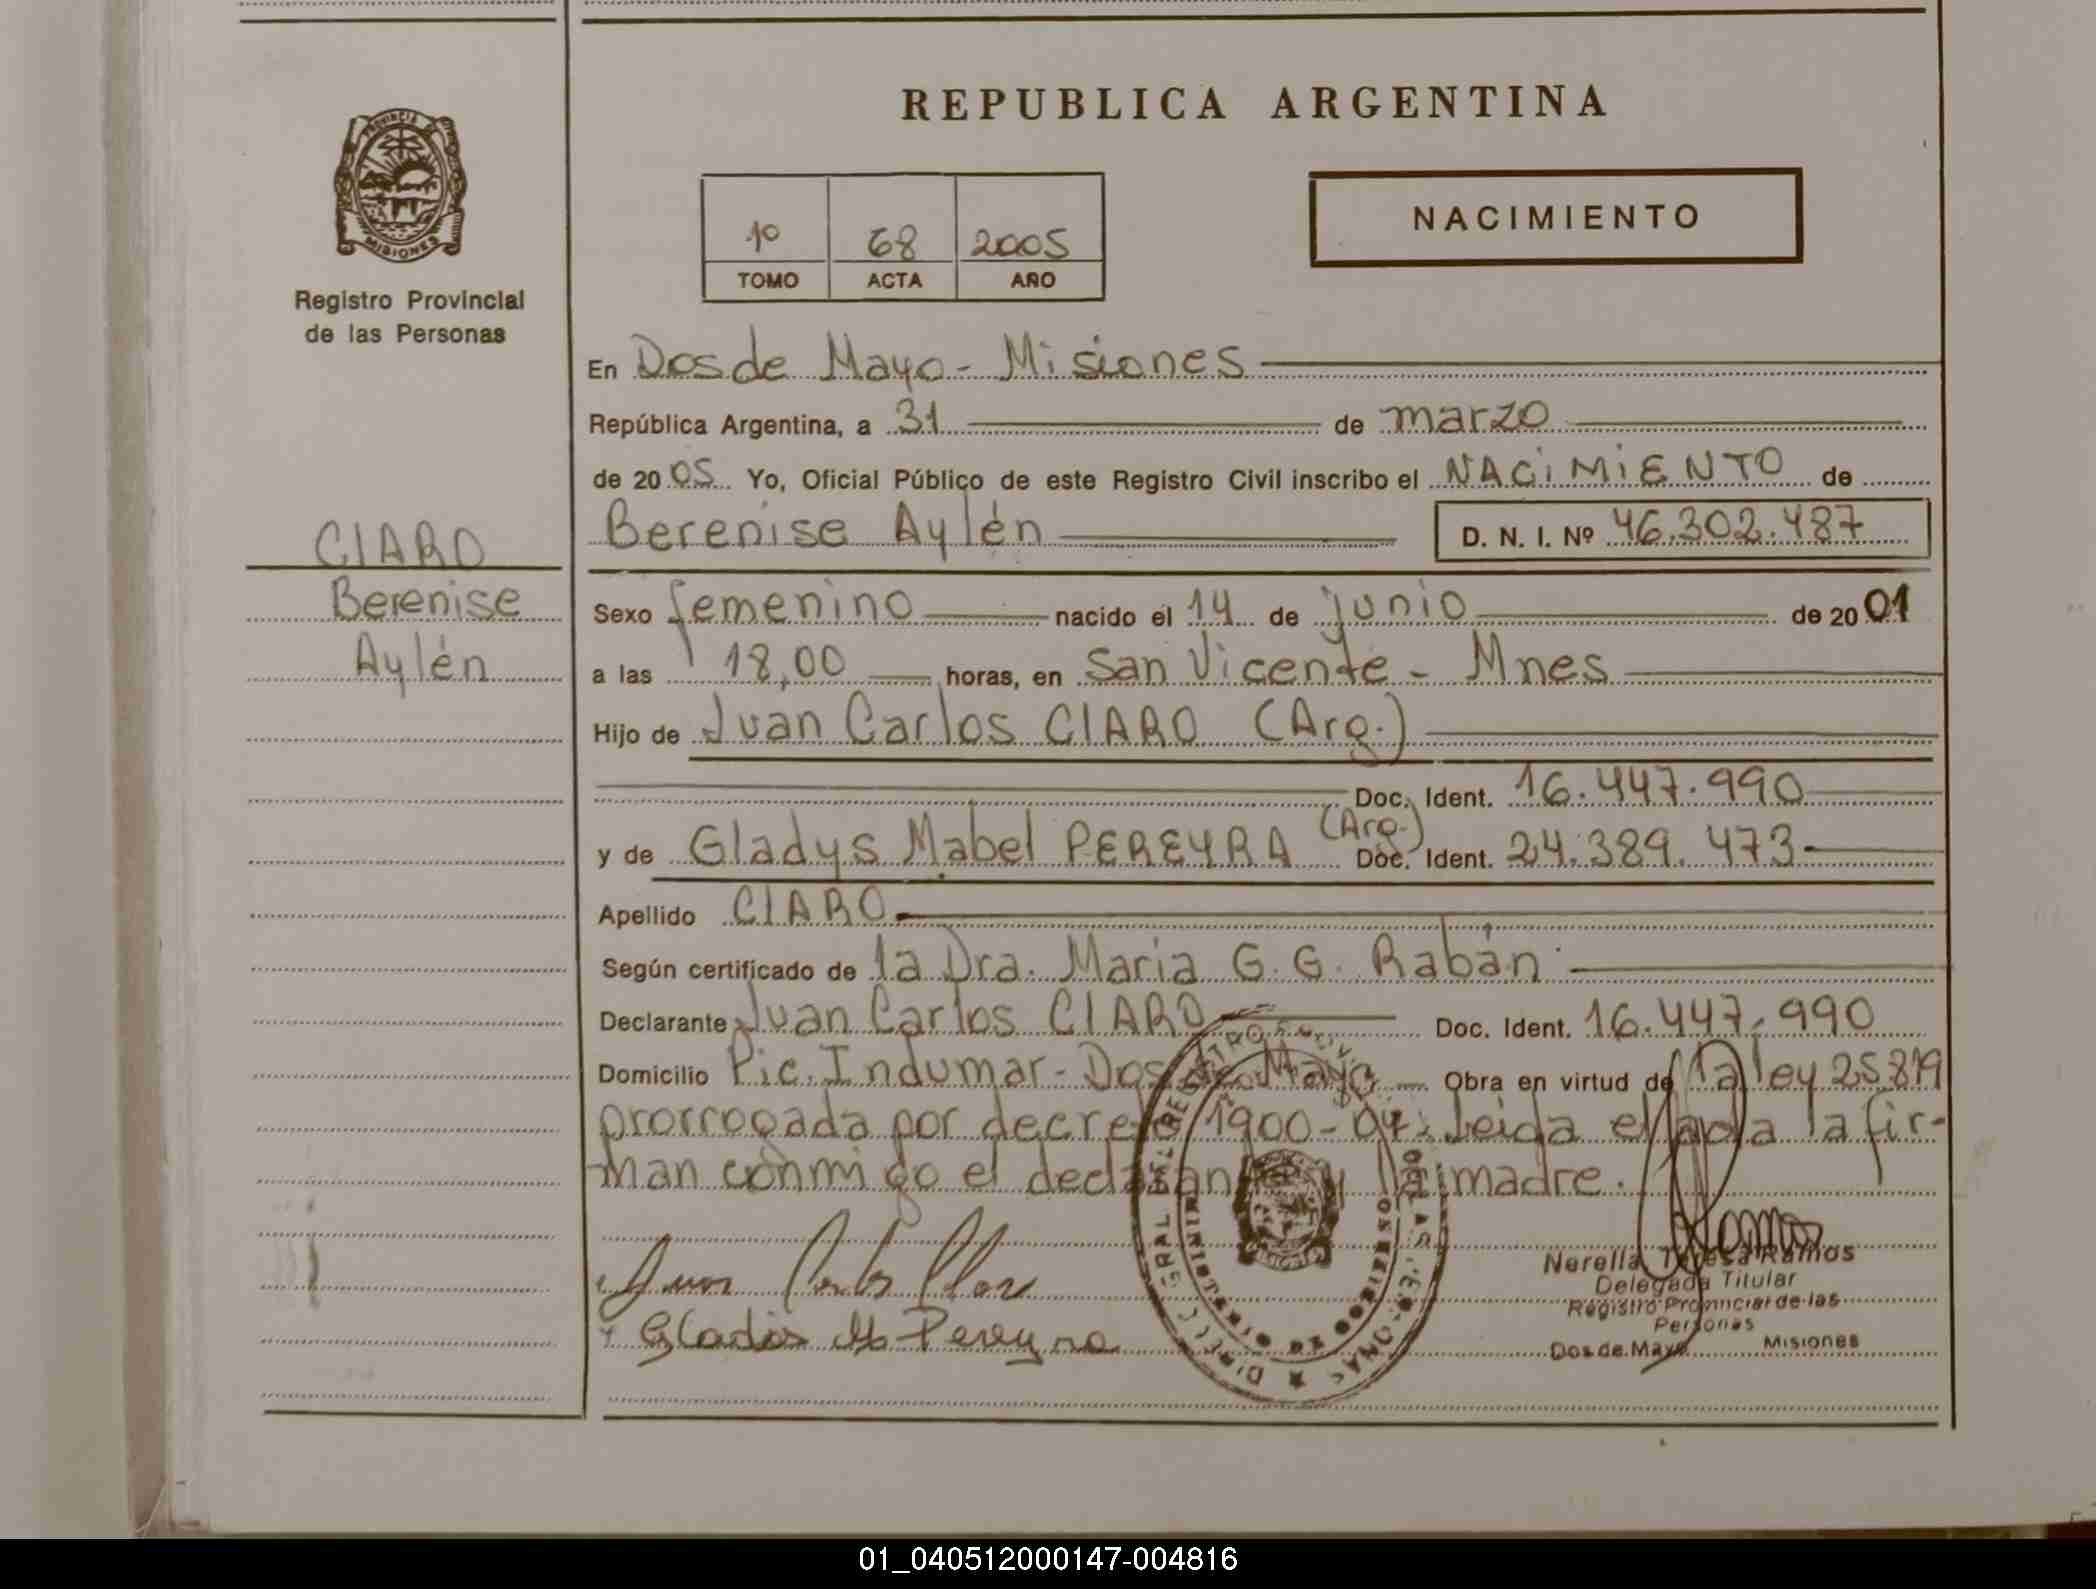 REPUBLICA ARGENTINA
PROVINCIA DE
MISIONES
Registro Provincial
de las Personas
1º 68 2005
TOMO ACTA AÑO
NACIMIENTO
En Dos de Mayo - Misiones
República Argentina, a 31 de marzo
de 2005 Yo, Oficial Público de este Registro Civil inscribo el NACIMIENTO de
Berenise Aylén D. N. I. Nº 46.302.487
CLARO
Berenise
Aylén
Sexo femenino nacido el 14 de junio de 2001
a las 18,00 horas, en San Vicente - Mnes
Hijo de Juan Carlos CLARO (Arg.)
Doc. Ident. 16.447.990
y de Gladys Mabel PEREYRA (Arg.) Doc. Ident. 24.389.473-
Apellido CLARO
Según certificado de la Dra. Maria G. G. Rabán
Declarante Juan Carlos CLARO Doc. Ident. 16.447.990
Domicilio Pic. Indumar - Dos de Mayo Obra en virtud de la ley 25819
prorrogada por decreto 1900-04. Leida el acta la fir-
man conmigo el declarante y la madre.
Juan Carlos Claro
Gladis M Pereyra
Nerella Teresa Ramos
Delegada Titular
Registro Provincial de las
Personas
Dos de Mayo Misiones
01_040512000147-004816